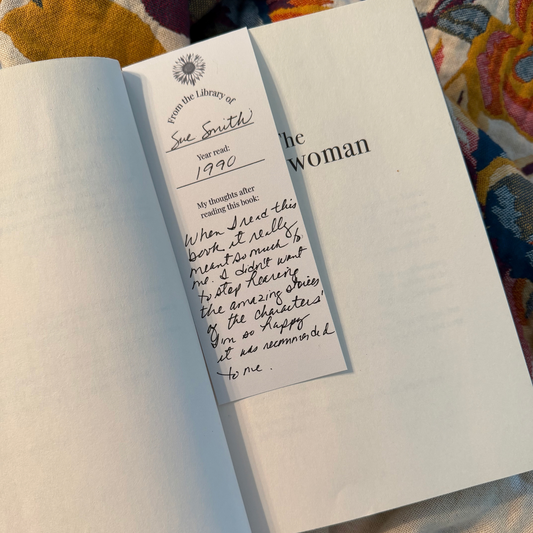 From the Library of
Sue Smith
Year read:
1990
My thoughts after
reading this book:
When I read this
book it really
meant so much to
me. I didn't want
to stop hearing
the amazing stories
of the characters'
I'm so happy
it was recommended
to me.
The
woman